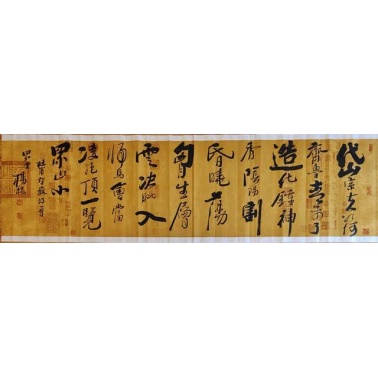 岱宗夫如何
齊魯青未了
造化鍾神
秀陰陽割
昏曉蕩
胸生層
雲決眥入
歸鳥會當
凌絕頂一覽
眾山小